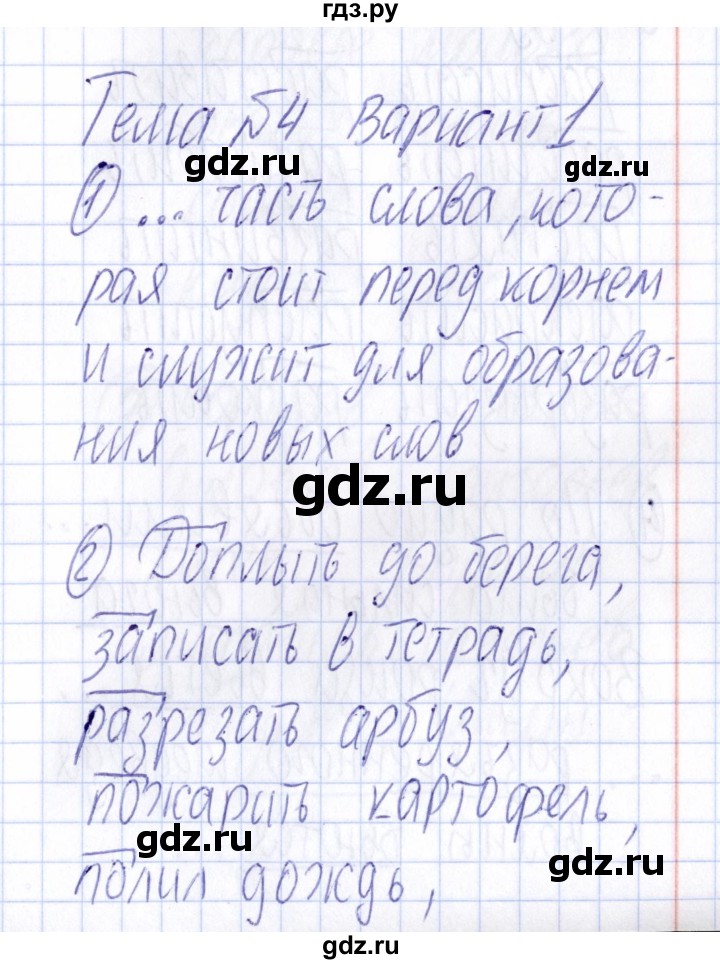 гдз.ру
Тема №4 Вариант 1
gdz.ru gdz.ru
① ... часть слова, кото-
gdz.ru gdz.ru
рая стоит перед корнем
и служит для образова-
ния новых слов
gdz.ru
② Доплыть до берега,
записать в тетрадь,
разрезать арбуз,
пожарить картофель,
gdz.ru gdz.ru
полил дождь,
gdz.ru